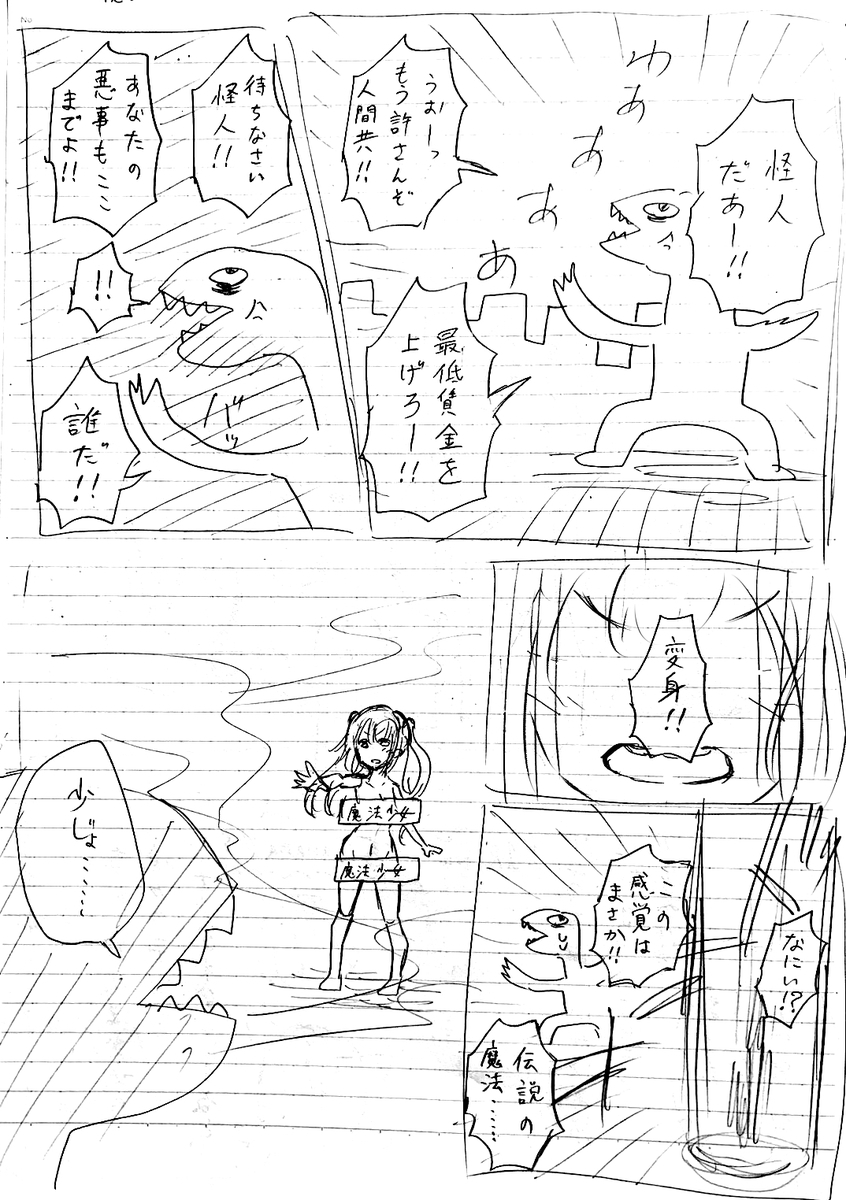 怪人
だあー!!
わ
ああああ
うおーっ
もう許さんぞ
人間共!!
最低賃金を
上げろー!!
待ちなさい
怪人!!
あなたの
悪事もここ
までよ!!
!!
バッ
誰だ!!
変身!!
なにぃ!?
この
感覚は
まさか!!
伝説の
魔法……
魔法少女
魔法少女
少じょ……